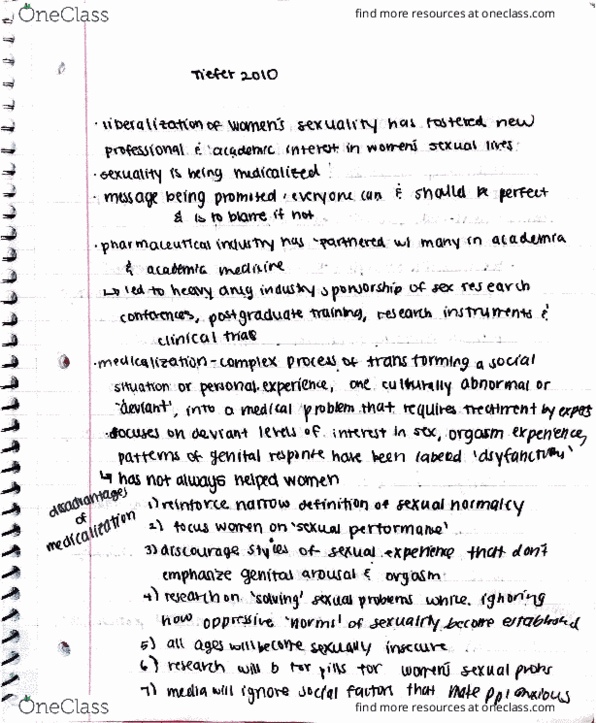 OneClass
find more resources at oneclass.com
Tiefer 2010
• liberalization of women's sexuality has fostered new
professional & academic interest in women's sexual lives.
• sexuality is being medicalized
• message being promoted: everyone can & should be perfect
& is to blame if not
• pharmaceutical industry has 'partnered w/ many in academia
& academic medicine
↳ led to heavy drug industry sponsorship of sex research
conferences, postgraduate training, research instruments &
clinical trials
• medicalization - complex process of transforming a social
situation or personal experience, one culturally abnormal or
'deviant', into a medical problem that requires treatment by experts
• focuses on deviant levels of interest in sex, orgasm experience,
patterns of genital response have been labeled 'dsyfunctions'
↳ has not always helped women
disadvantages
of
medicalization
1) reinforce narrow definition of sexual normalcy
2) focus women on 'sexual performance'
3) discourage styles of sexual experience that don't
emphasize genital arousal & orgasm
4) research on 'solving' sexual problems while ignoring
how oppressive 'norms' of sexuality become established
5) all ages will become sexually insecure
6) research will b for pills for women's sexual probs
7) media will ignore social factors that make ppl anxious
OneClass
find more resources at oneclass.com